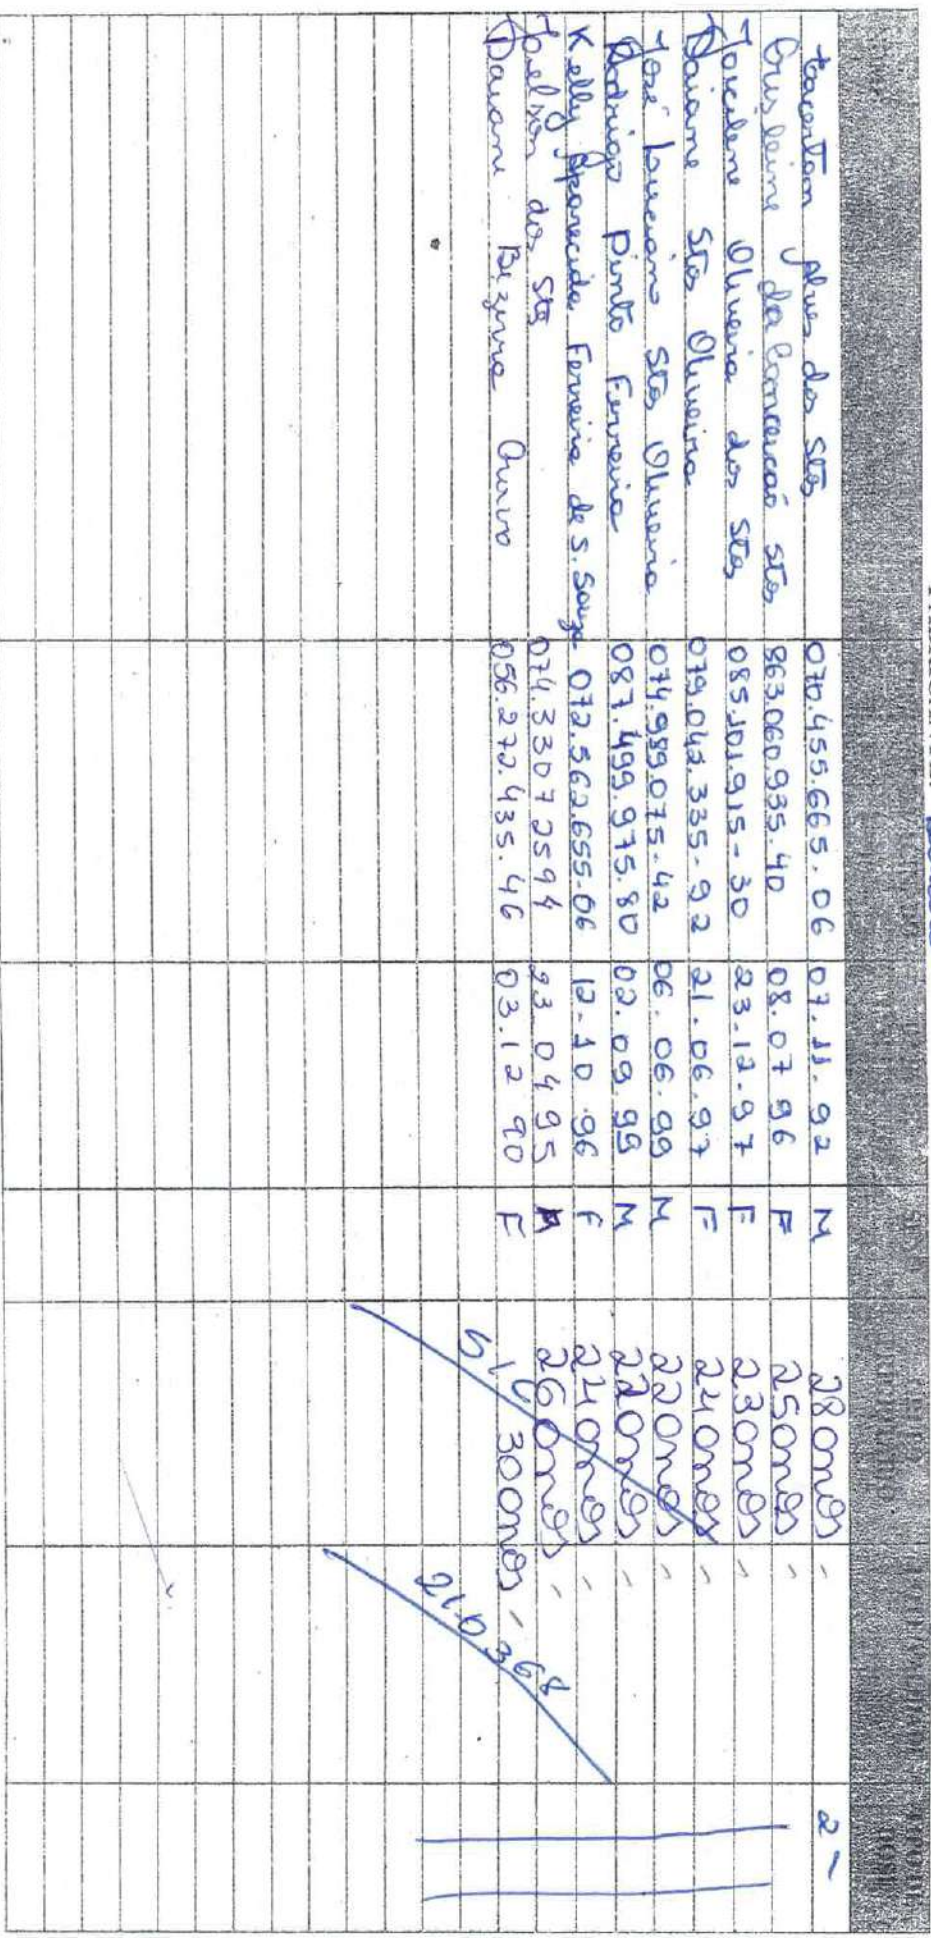 Alves dos Stos 070.455.665.06 07.11.92 M 28 anos - 2-
Crisleine da Conceicaõ stos 863.060.935.40 08.07 96 F 25 anos -
Joicilene Oliveira dos Stos 085.101.915-30 23.12.97 F 23 anos -
Daiane Stos Oliveira 079.042.335-92 21.06.97 F 24 anos -
José Luciano Stos Oliveira 074.989.075.42 06.06.99 M 22 anos -
Rodrigo Pinto Ferreira 087.499.975.80 02.09.99 M 22 anos -
Kelly Aparecida Ferreira de S. Souza 072.562.655.06 12-10 96 F 24 anos -
Joelson dos Stos 074.330725 94 23 04 95 M 26 anos -
Daiane Bezerra 056.272.435.46 03.12 90 F 30 anos -
210368